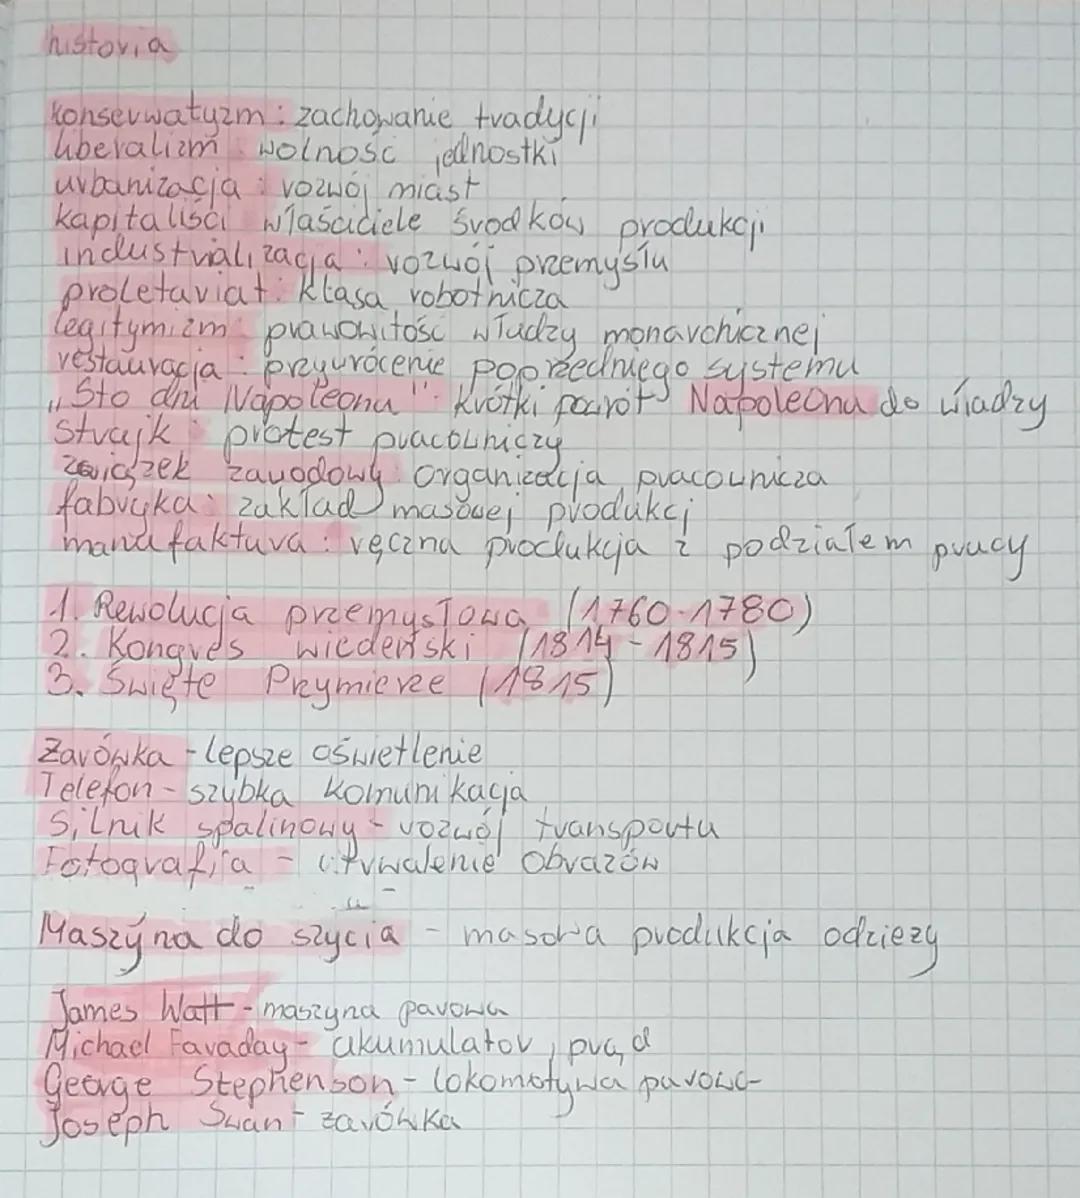 historia
konserwatyzm: zachowanie tradycji
liberalizm: wolność jednostki
urbanizacja: rozwój miast
kapitaliści właściciele środków produkcji
industrializacja: rozwój przemysłu
proletariat: klasa robotnicza
legitymizm: prawowitość władzy monarchicznej
restauracja: przywrócenie poprzedniego systemu
"Sto dni Napoleona": krótki powrót Napoleona do władzy
strajk: protest pracowniczy
związek zawodowy: organizacja pracownicza
fabryka: zakład masowej produkcj
manufaktura: ręczna produkcja z podziałem pracy
1. Rewolucja przemysłowa (1760-1780)
2. Kongres wiedeński (1814-1815)
3. Święte Przymierze (1815)
Żarówka - lepsze oświetlenie
Telefon - szybka komunikacja
Silnik spalinowy - rozwój transportu
Fotografia - utrwalenie obrazów
Maszyna do szycia - masowa produkcja odzieży
James Watt - maszyna parowa
Michael Faraday - akumulator, prąd
George Stephenson - lokomotywa parowa
Joseph Swan - żarówka